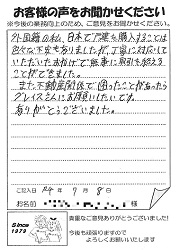 お客様の声をお聞かせください
※今後の業務向上のため、ご意見をお聞かせください。
外国籍の私、日本で戸建を購入することは
色々な不安もありましたが、丁寧に対応して
いただいたおかげで無事に取引を終える
ことができました。
また不動産関係で困ったことがあったら
グレイスさんにお願いしたいです。
ありがとうございました。
ご記入日 24年 7月 8日
お名前
Since
1979
貴重なご意見ありがとうございました!
今後も頑張りますので
よろしくお願いいたします